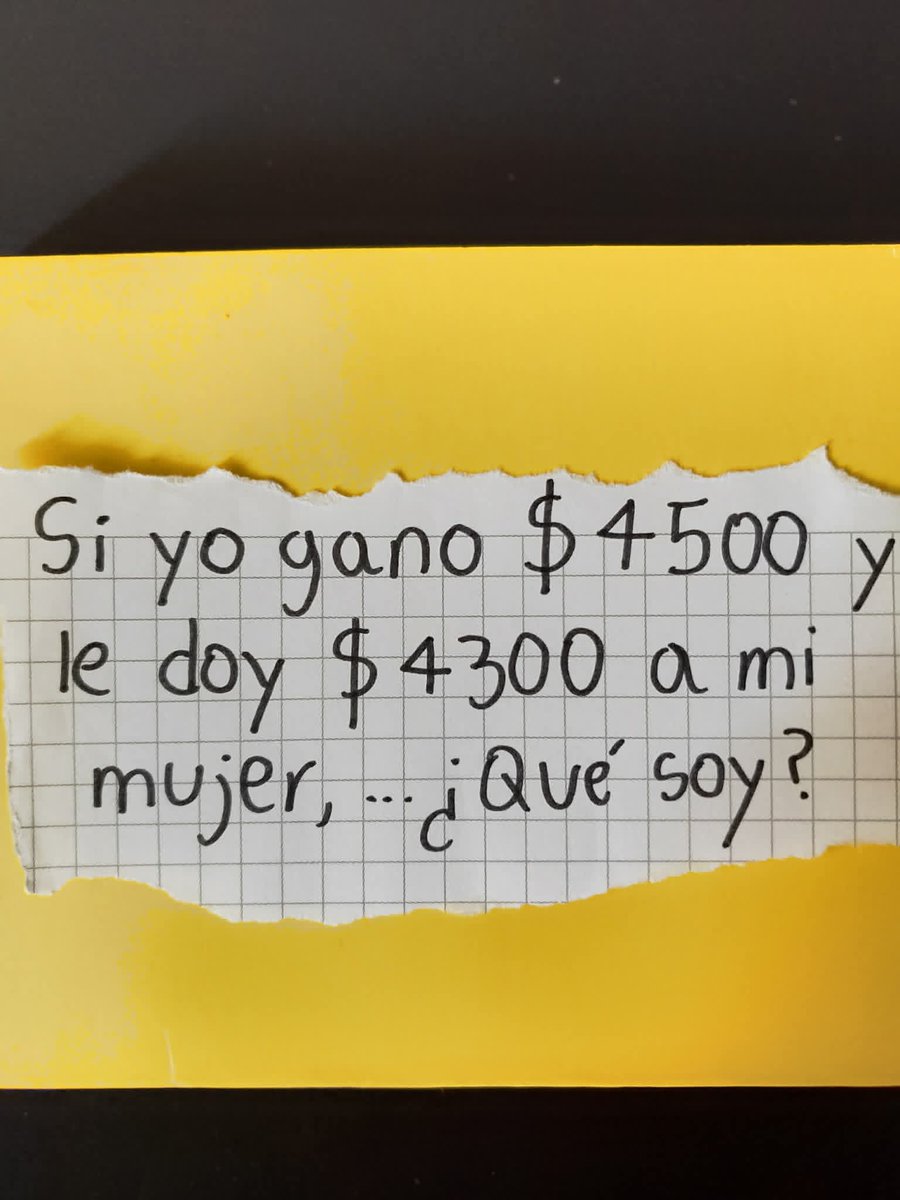 Si yo gano $4500 y
le doy $4300 a mi
mujer, ... ¿Qué soy?